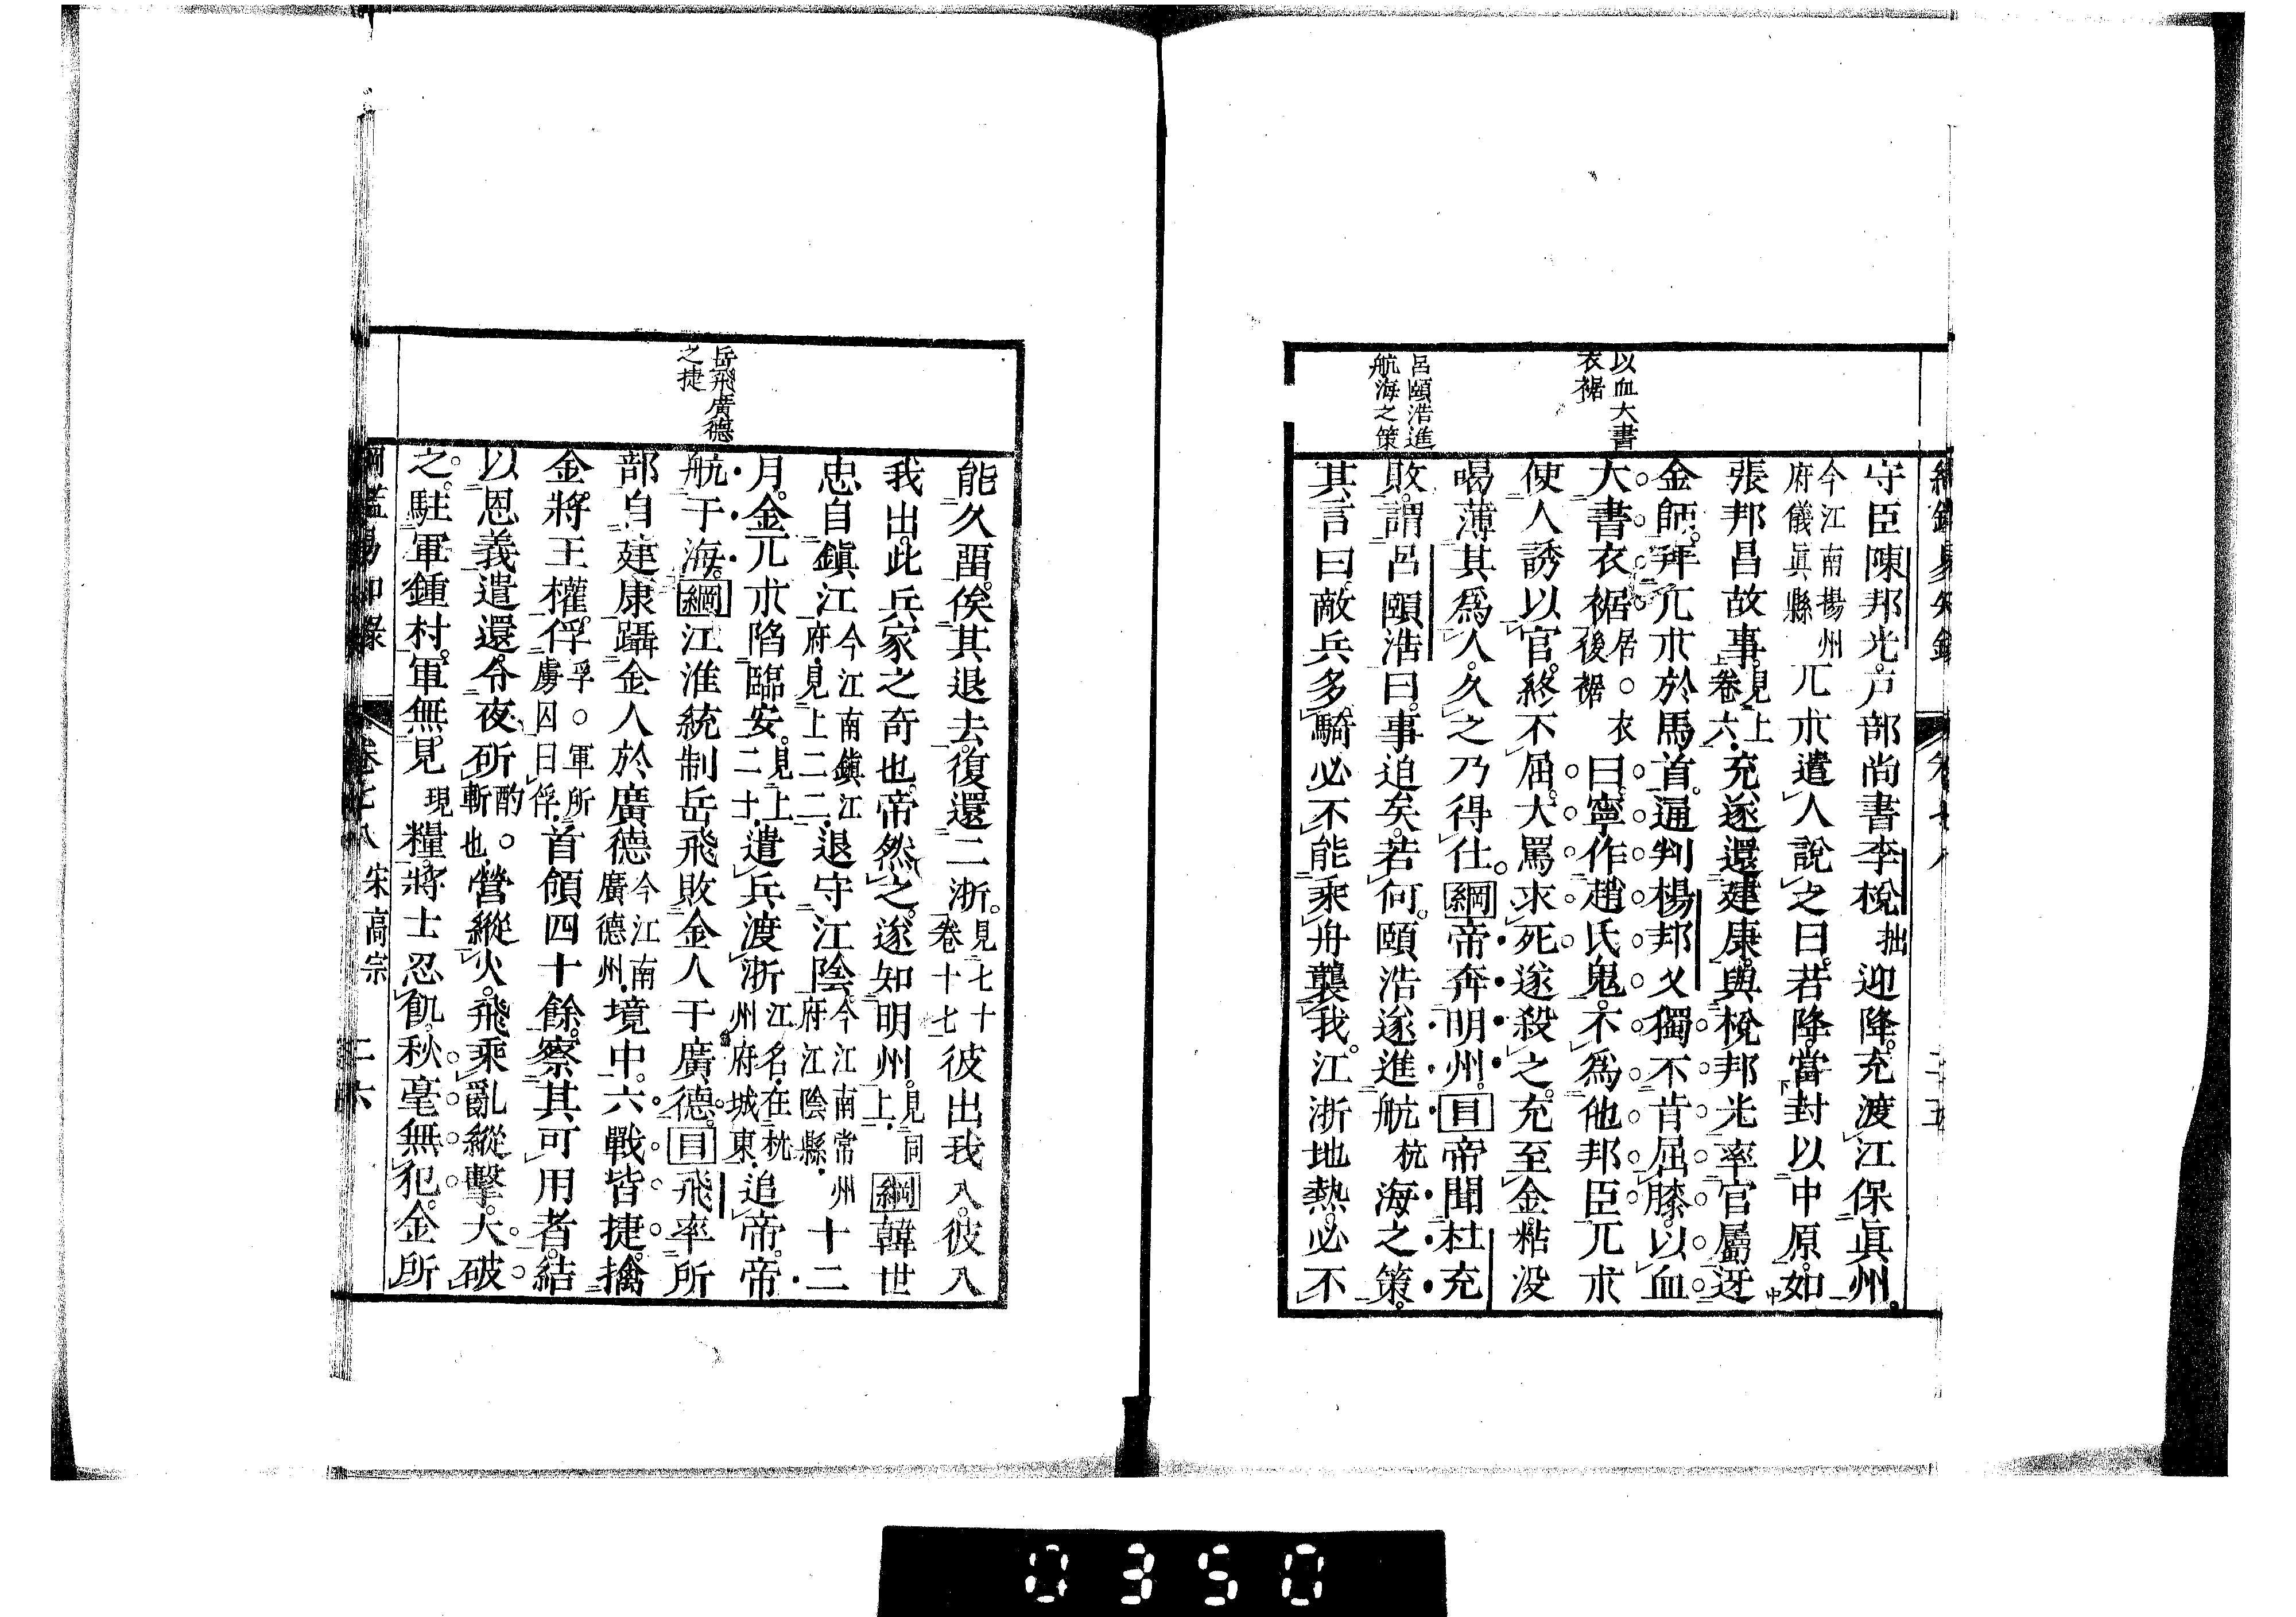 以血大書
衣裾
呂頤浩進
航海之策
守臣陳邦光。戸部尚書李梲拙迎降。充渡江保眞州。
今江南揚州府儀眞縣兀朮遣人說之曰。若降。當封以中原。如
張邦昌故事。見上卷六。充遂還建康。與梲邦光率官屬迓
金師。拜兀朮於馬首。通判楊邦乂獨不肯屈膝。以血
大書衣裾居。衣後裾曰。寧作趙氏鬼。不爲他邦臣。兀朮
使人誘以官。終不屈。大罵求死。遂殺之。充至金。粘没
喝薄其爲人。久之乃得仕。綱帝奔明州。目帝聞杜充
敗。謂呂頤浩曰。事迫矣。若何。頤浩遂進航杭海之策。
其言曰。敵兵多騎。必不能乘舟襲我。江浙地熱。必不
岳飛廣德
之捷
能久畱。俟其退去。復還二浙。見七十卷十七彼出我入。彼入
我出。此兵家之奇也。帝然之。遂如明州。見同上綱韓世
忠自鎭江今江南鎭江府。見上二二退守江陰。今江南常州府江陰縣十二
月。金兀朮陷臨安。見上二十遣兵渡浙江名。在杭州府城東追帝。帝
航于海。綱江淮統制岳飛敗金人于廣德。目飛率所
部自建康躡金人於廣德今江南廣德州境中。六戰皆捷。擒
金將王權。俘孚。軍所虜囚曰俘首領四十餘。察其可用者。結
以恩義遣還。令夜斫酌。斬也營縱火。飛乘亂縱擊。大破
之。駐軍鍾村。軍無見現糧。將士忍飢。秋毫無犯。金所
綱鑑易知錄 卷七八 宋高宗 二六
0350